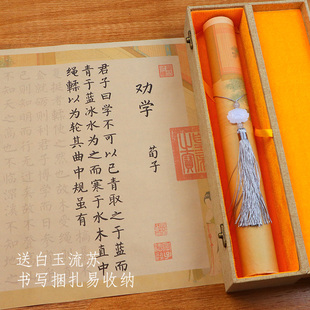 劝学
荀子
君子曰学不可以已青取之于蓝而
青于蓝冰水为之而寒于水木直中
绳輮以为轮其曲中规虽有
送白玉流苏
书写捆扎易收纳